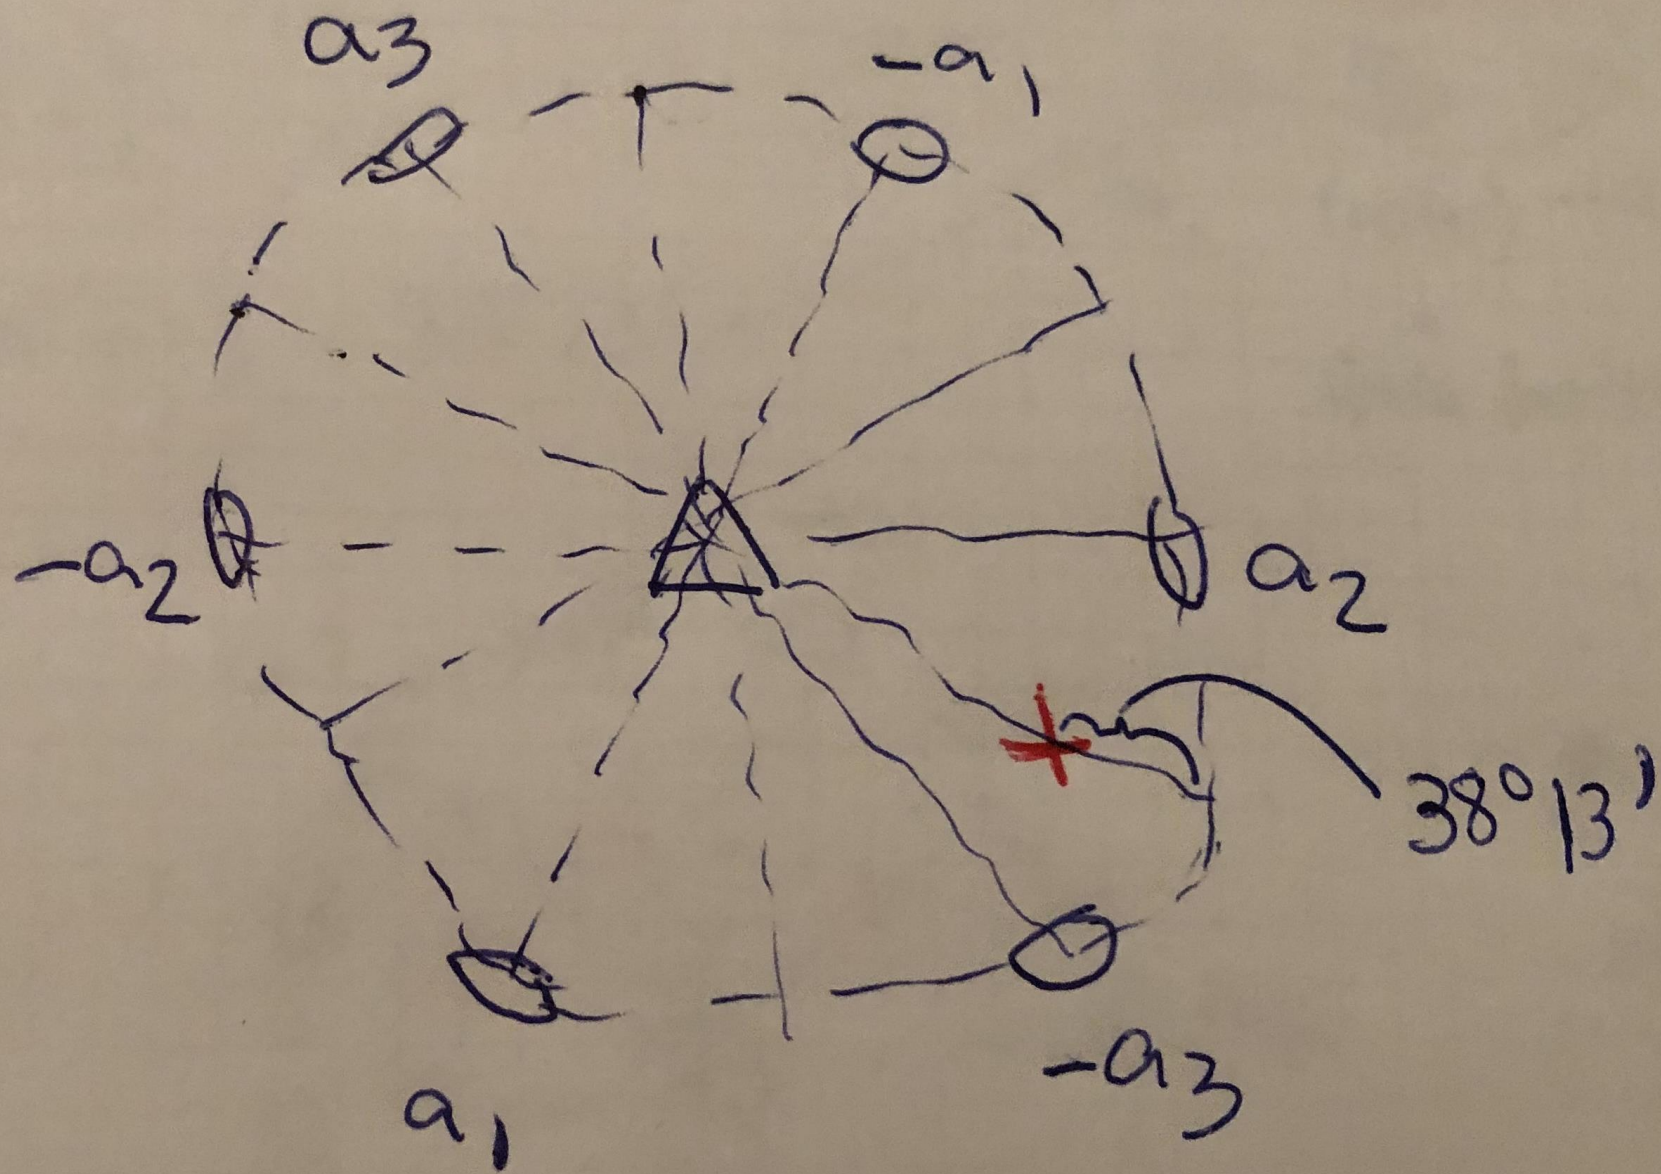 a3
-a1
-a2
a2
38°13'
-a3
a1